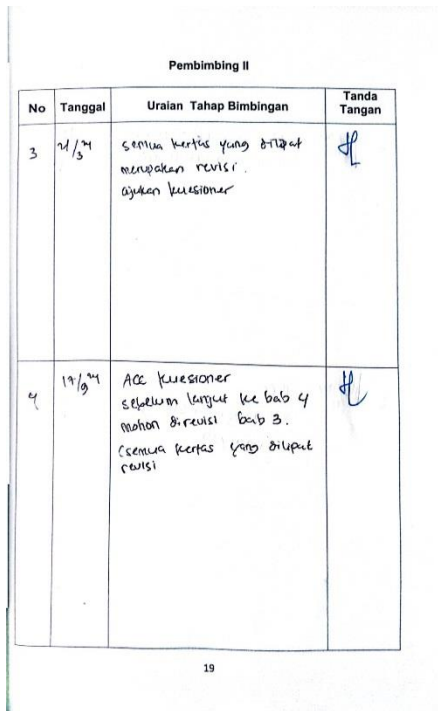 Pembimbing II
No Tanggal Uraian Tahap Bimbingan Tanda Tangan
3 21/3 24 semua kertas yang dilipat
merupakan revisi.
ajukan kuesioner
4 17/9 24 Acc kuesioner
sebelum lanjut ke bab 4
mohon direvisi bab 3.
(semua kertas yang dilipat
revisi
19